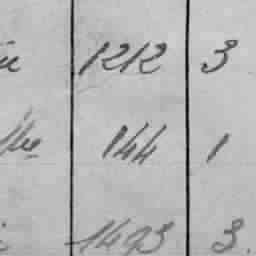 1212 3
144 1
1493 3.